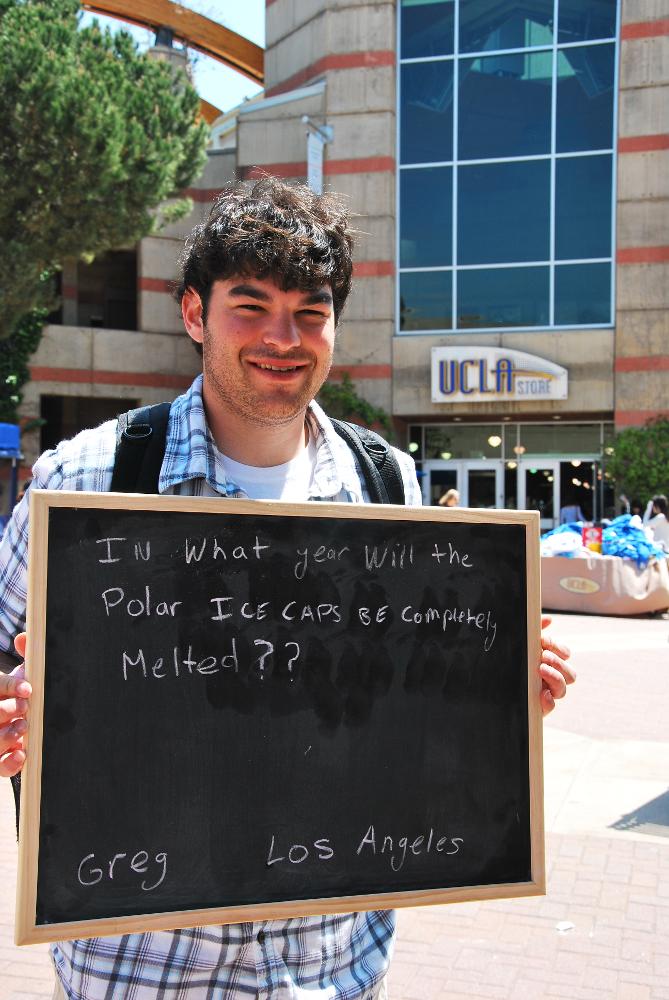 UCLA STORE
In What year Will the
Polar ICE CAPS BE Completely
Melted??
Greg Los Angeles